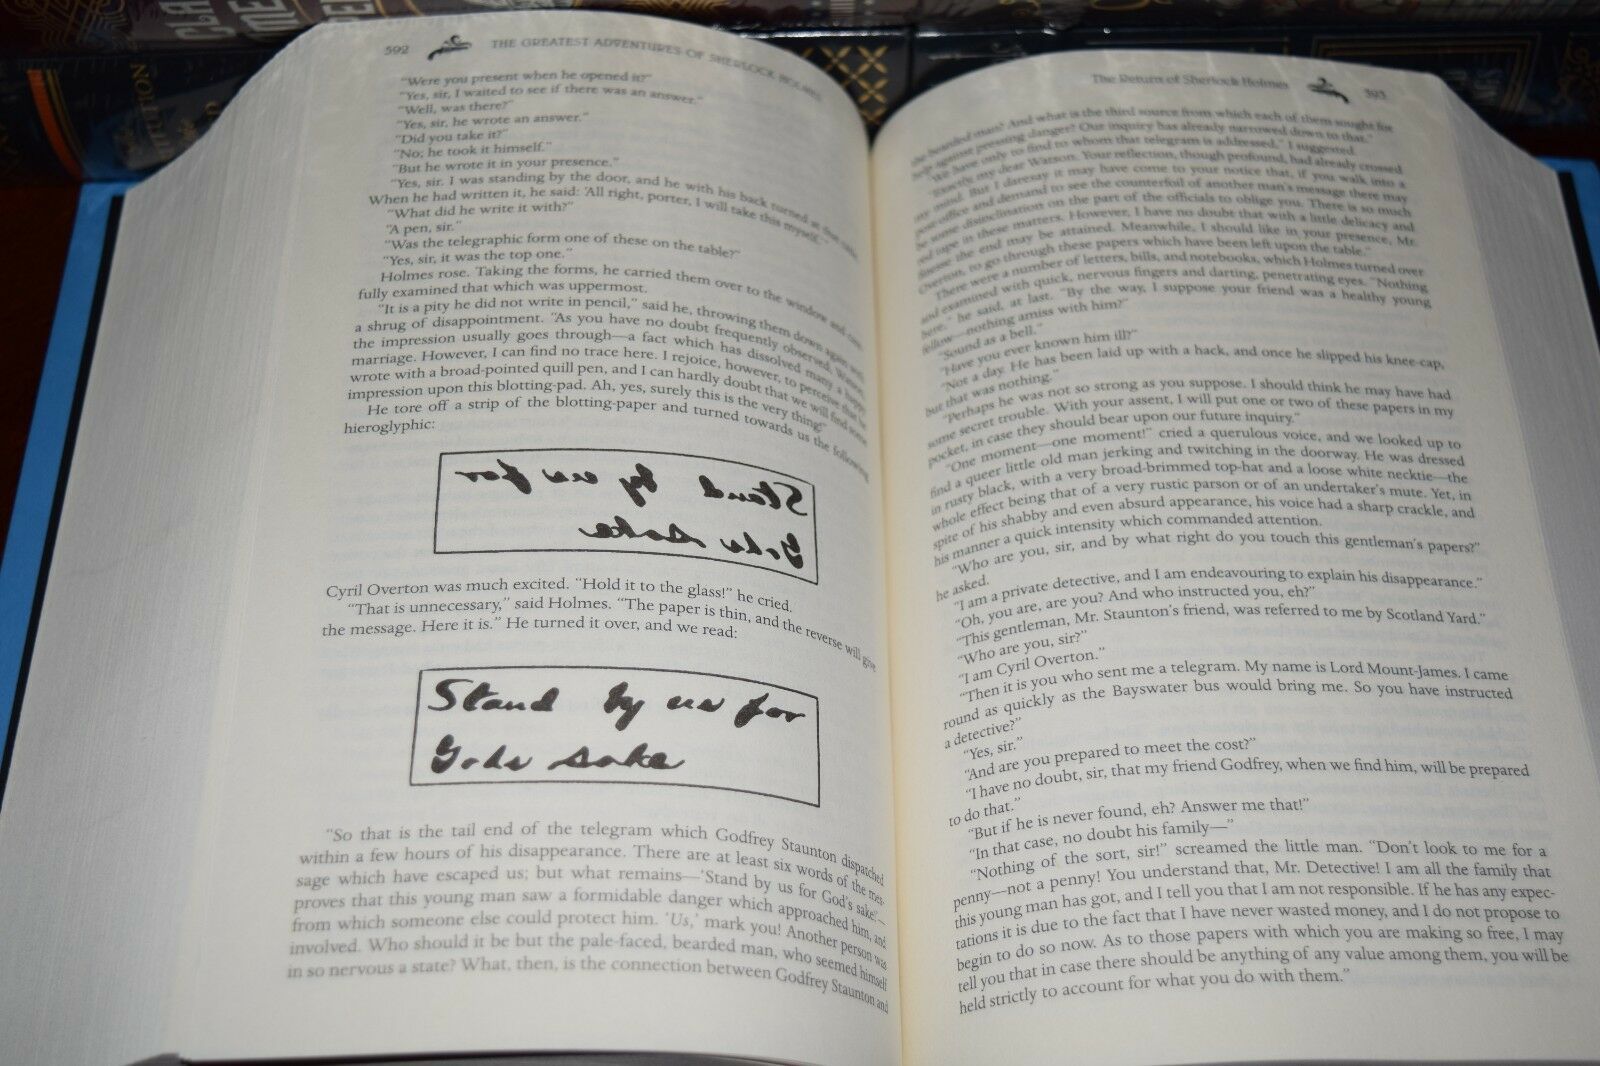 592 THE GREATEST ADVENTURES OF SHERLOCK HOLMES
"Were you present when he opened it?"
"Yes, sir, I waited to see if there was an answer."
"Well, was there?"
"Yes, sir, he wrote an answer."
"Did you take it?"
"No; he took it himself."
"But he wrote it in your presence."
"Yes, sir. I was standing by the door, and he with his back turned at that table.
When he had written it, he said: 'All right, porter, I will take this myself.'"
"What did he write it with?"
"A pen, sir."
"Was the telegraphic form one of these on the table?"
"Yes, sir, it was the top one."
Holmes rose. Taking the forms, he carried them over to the window and care-
fully examined that which was uppermost.
"It is a pity he did not write in pencil," said he, throwing them down again with
a shrug of disappointment. "As you have no doubt frequently observed, Watson,
the impression usually goes through—a fact which has dissolved many a happy
marriage. However, I can find no trace here. I rejoice, however, to perceive that he
wrote with a broad-pointed quill pen, and I can hardly doubt that we will find some
impression upon this blotting-pad. Ah, yes, surely this is the very thing!"
He tore off a strip of the blotting-paper and turned towards us the following
hieroglyphic:
Stand by us for
Gods sake
Cyril Overton was much excited. "Hold it to the glass!" he cried.
"That is unnecessary," said Holmes. "The paper is thin, and the reverse will give
the message. Here it is." He turned it over, and we read:
Stand by us for
Gods sake
"So that is the tail end of the telegram which Godfrey Staunton dispatched
within a few hours of his disappearance. There are at least six words of the mes-
sage which have escaped us; but what remains—'Stand by us for God's sake!'—
proves that this young man saw a formidable danger which approached him, and
from which someone else could protect him. 'Us,' mark you! Another person was
involved. Who should it be but the pale-faced, bearded man, who seemed himself
in so nervous a state? What, then, is the connection between Godfrey Staunton and
The Return of Sherlock Holmes 593
the bearded man? And what is the third source from which each of them sought for
help against pressing danger? Our inquiry has already narrowed down to that."
"We have only to find to whom that telegram is addressed," I suggested.
"Exactly, my dear Watson. Your reflection, though profound, had already crossed
my mind. But I daresay it may have come to your notice that, if you walk into a
post-office and demand to see the counterfoil of another man's message there may
be some disinclination on the part of the officials to oblige you. There is so much
red tape in these matters. However, I have no doubt that with a little delicacy and
finesse the end may be attained. Meanwhile, I should like in your presence, Mr.
Overton, to go through these papers which have been left upon the table."
There were a number of letters, bills, and notebooks, which Holmes turned over
and examined with quick, nervous fingers and darting, penetrating eyes. "Nothing
here," he said, at last. "By the way, I suppose your friend was a healthy young
fellow—nothing amiss with him?"
"Sound as a bell."
"Have you ever known him ill?"
"Not a day. He has been laid up with a hack, and once he slipped his knee-cap,
but that was nothing."
"Perhaps he was not so strong as you suppose. I should think he may have had
some secret trouble. With your assent, I will put one or two of these papers in my
pocket, in case they should bear upon our future inquiry."
"One moment—one moment!" cried a querulous voice, and we looked up to
find a queer little old man jerking and twitching in the doorway. He was dressed
in rusty black, with a very broad-brimmed top-hat and a loose white necktie—the
whole effect being that of a very rustic parson or of an undertaker's mute. Yet, in
spite of his shabby and even absurd appearance, his voice had a sharp crackle, and
his manner a quick intensity which commanded attention.
"Who are you, sir, and by what right do you touch this gentleman's papers?"
he asked.
"I am a private detective, and I am endeavouring to explain his disappearance."
"Oh, you are, are you? And who instructed you, eh?"
"This gentleman, Mr. Staunton's friend, was referred to me by Scotland Yard."
"Who are you, sir?"
"I am Cyril Overton."
"Then it is you who sent me a telegram. My name is Lord Mount-James. I came
round as quickly as the Bayswater bus would bring me. So you have instructed
a detective?"
"Yes, sir."
"And are you prepared to meet the cost?"
"I have no doubt, sir, that my friend Godfrey, when we find him, will be prepared
to do that."
"But if he is never found, eh? Answer me that!"
"In that case, no doubt his family—"
"Nothing of the sort, sir!" screamed the little man. "Don't look to me for a
penny—not a penny! You understand that, Mr. Detective! I am all the family that
this young man has got, and I tell you that I am not responsible. If he has any expec-
tations it is due to the fact that I have never wasted money, and I do not propose to
begin to do so now. As to those papers with which you are making so free, I may
tell you that in case there should be anything of any value among them, you will be
held strictly to account for what you do with them."